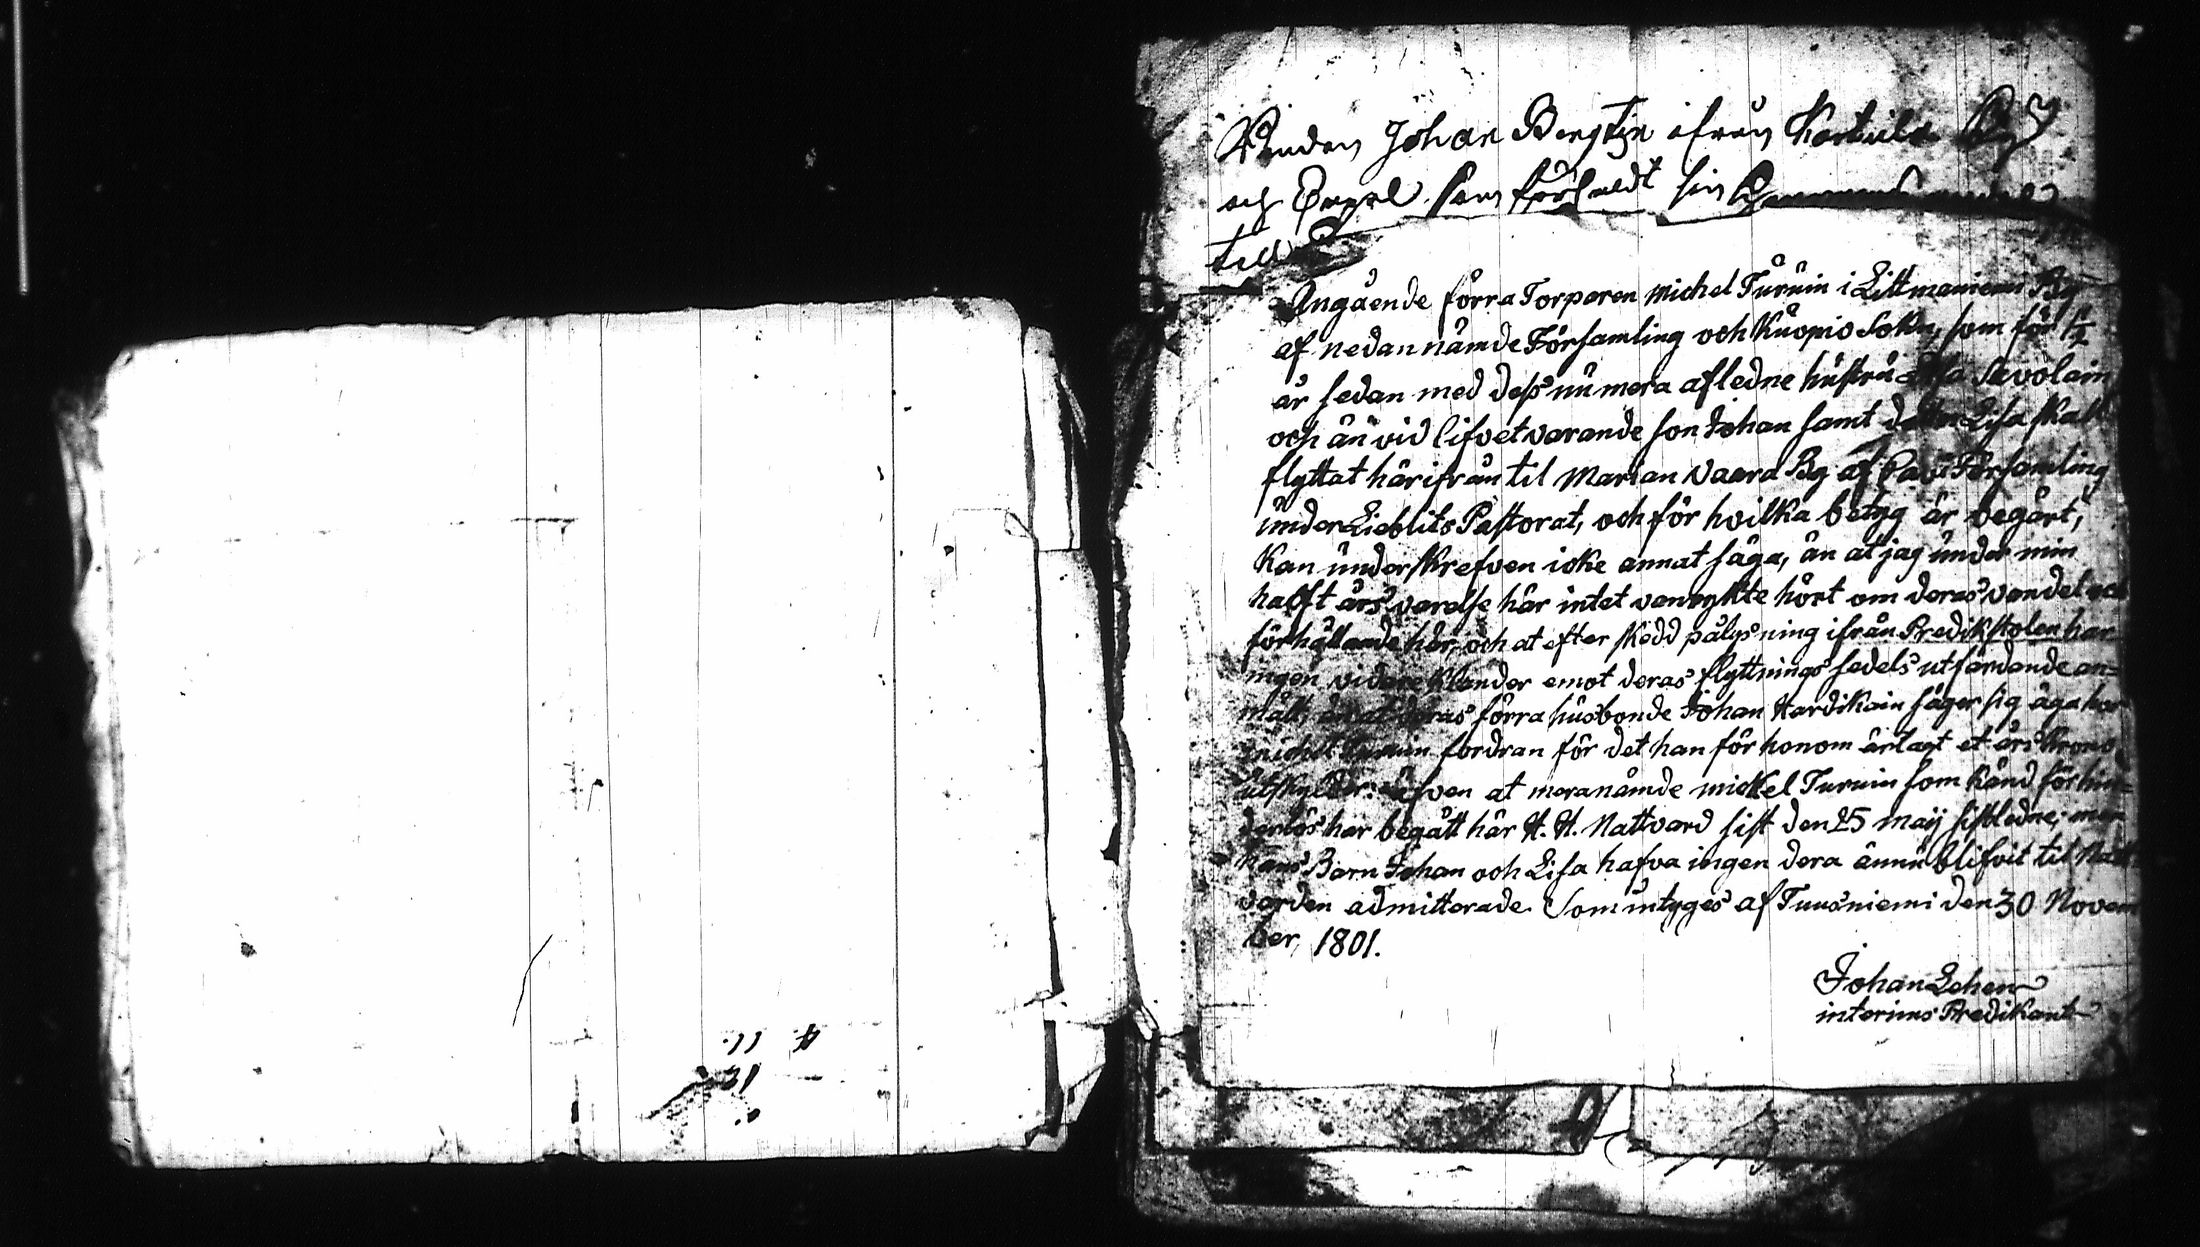 Johan Bergtin ifrån By
och som försåldt sin
till
Angående förra Torparen Michel Turuin i Litmaniemi By
af nedannämde Församling och Kuopio Sokn, som för 1/2
år sedan med dess nu mera afledne hustru Lisa Savolain
och än vid lifvet varande son Johan samt dotter Lisa skall
flyttat härifrån til Marianvaara By af Pavi Församling
under Lieblits Pastorat, och för hvilka betyg är begärt,
kan underskrefven icke annat säga, än at jag under min
halft års varelse här intet vanrykte hört om deras vandel och
förhållande här, och at efter skedd pålysning ifrån Predikstolen har
ingen vidare klander emot deras flyttnings sedels utfärdande an=
mält, än at deras förra husbonde Johan Hardikain säger sig äga hos
Michel Turuin fordran för det han för honom ärlagt et års Krono
utskylder: äfven at meranämde Mickel Turuin som känd för hin=
derlös har begått här H. H. Nattvard sist den 25 Maij sistledne; men
hans Barn Johan och Lisa hafva ingen dera ännu blifvit til Natt
varden admitterade. Som intyges af Tuusniemi den 30 Novem
ber, 1801.
Johan Lehen
interims Predikant
4. 11.
12